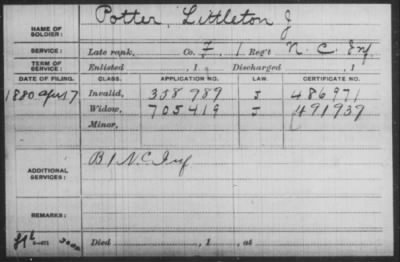 NAME OF SOLDIER: Potter, Littleton J
SERVICE: Late rank, Co. F, 1 Reg't N. C. Inf
TERM OF SERVICE: Enlisted , 1 Discharged , 1
DATE OF FILING. CLASS. APPLICATION NO. LAW. CERTIFICATE NO.
1880 Apr 17 Invalid, 358 789 J 486971
Widow, 705419 J 491939
Minor,
ADDITIONAL SERVICES: B 1 N.C. Inf
REMARKS:
Died , 1 , at